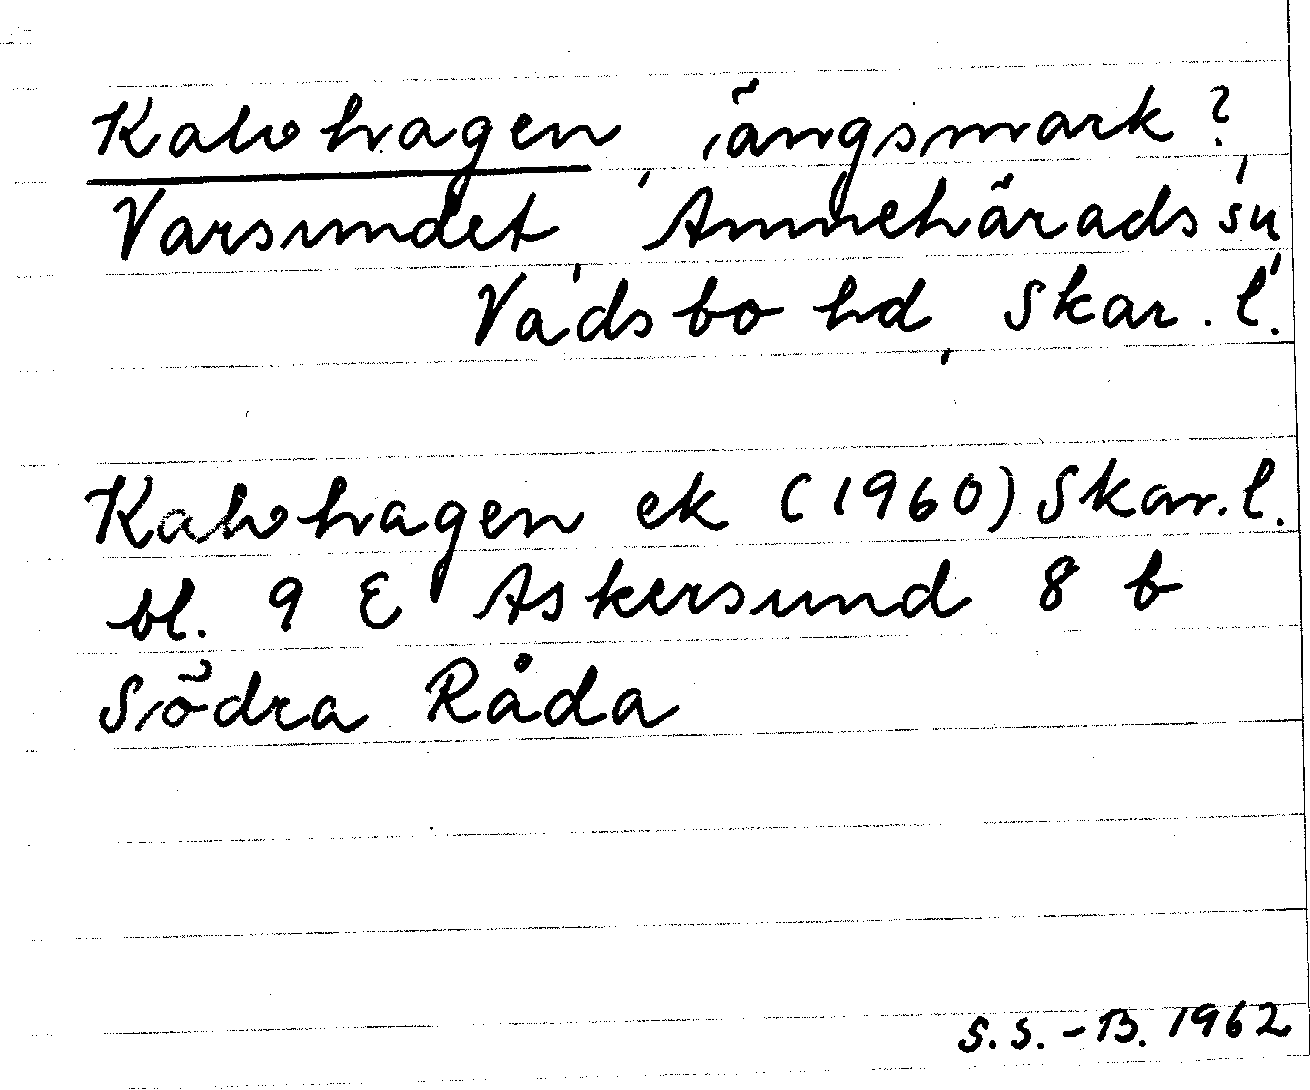 Kalvhagen, ängsmark?,
Varsundet, Amnehärads sn,
Vadsbo hd, Skar. l.
Kalvhagen ek (1960) Skar. l.
bl. 9 E Askersund 8 b
Södra Råda
S.S.-B. 1962